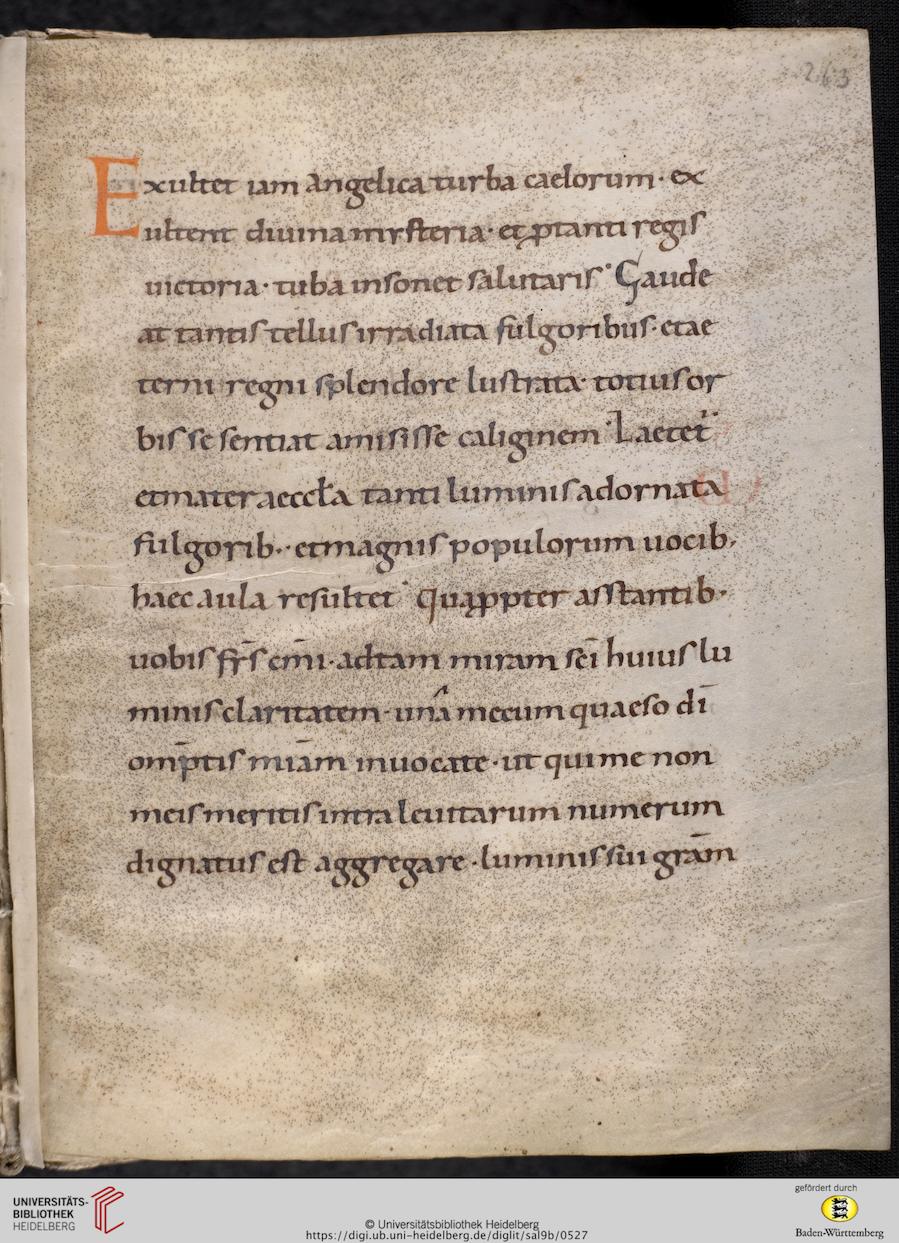 263
Exultet iam angelica turba caelorum· ex
ultent diuina mysteria· et ꝓ tanti regis
uictoria· tuba insonet salutaris· Gaude
at tantis tellus irradiata fulgoribus· et ae
terni regni splendore lustrata· totius or
bis se sentiat amisisse caliginem· Laetet̃
et mater aeccła tanti luminis adornata
fulgorib·· et magnis populorum uocib·
haec aula resultet· Quaꝓpter asstantib·
uobis fr̄s cm̄i· ad tam miram sc̄i huius lu
minis claritatem· una mecum quaeso dī
omp̄tis miām inuocate· ut qui me non
meis meritis intra leuitarum numerum
dignatus est aggregare· luminis sui grām
UNIVERSITÄTS-
BIBLIOTHEK
HEIDELBERG
© Universitätsbibliothek Heidelberg
https://digi.ub.uni-heidelberg.de/diglit/sal9b/0527
gefördert durch
Baden-Württemberg